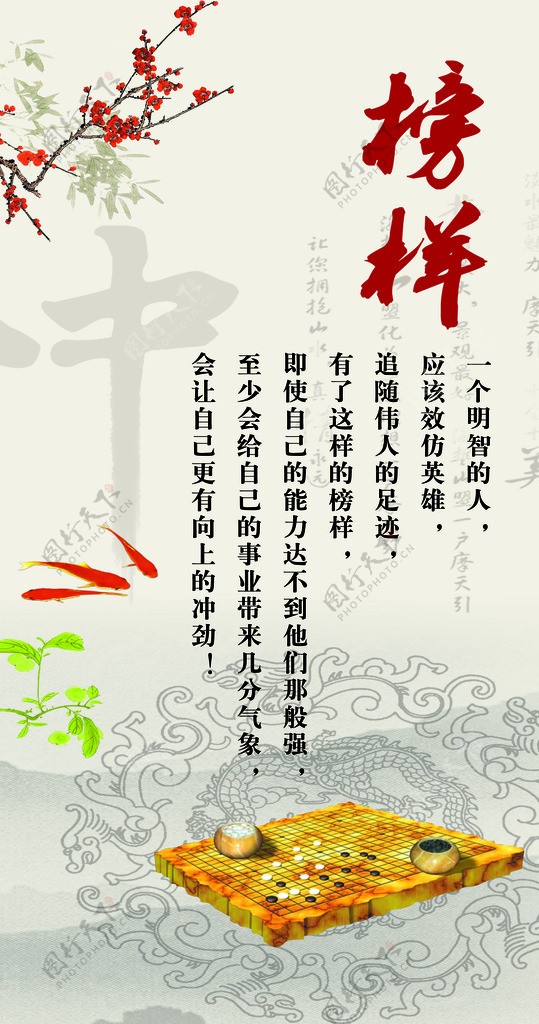 榜样
一个明智的人，
应该效仿英雄，
追随伟人的足迹，
有了这样的榜样，
即使自己的能力达不到他们那般强，
至少会给自己的事业带来几分气象，
会让自己更有向上的冲劲！
冲
让您拥抱山水
图行天下
PHOTOPHOTO.CN